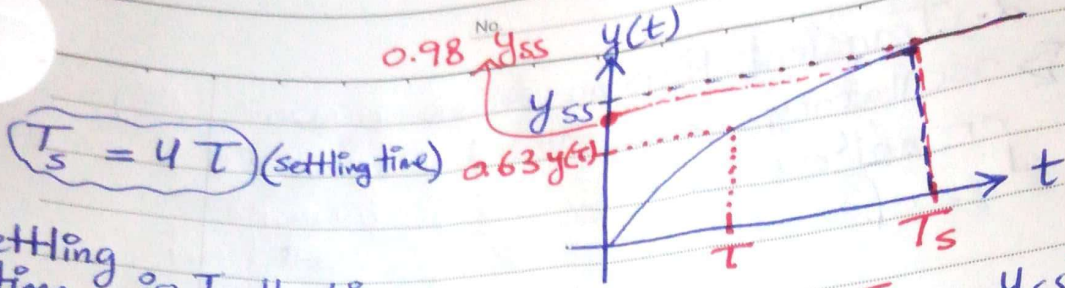 No
0.98 yss
y(t)
yss
Ts = 4τ (settling time)
0.63 y(τ)
t
τ
Ts
ettling